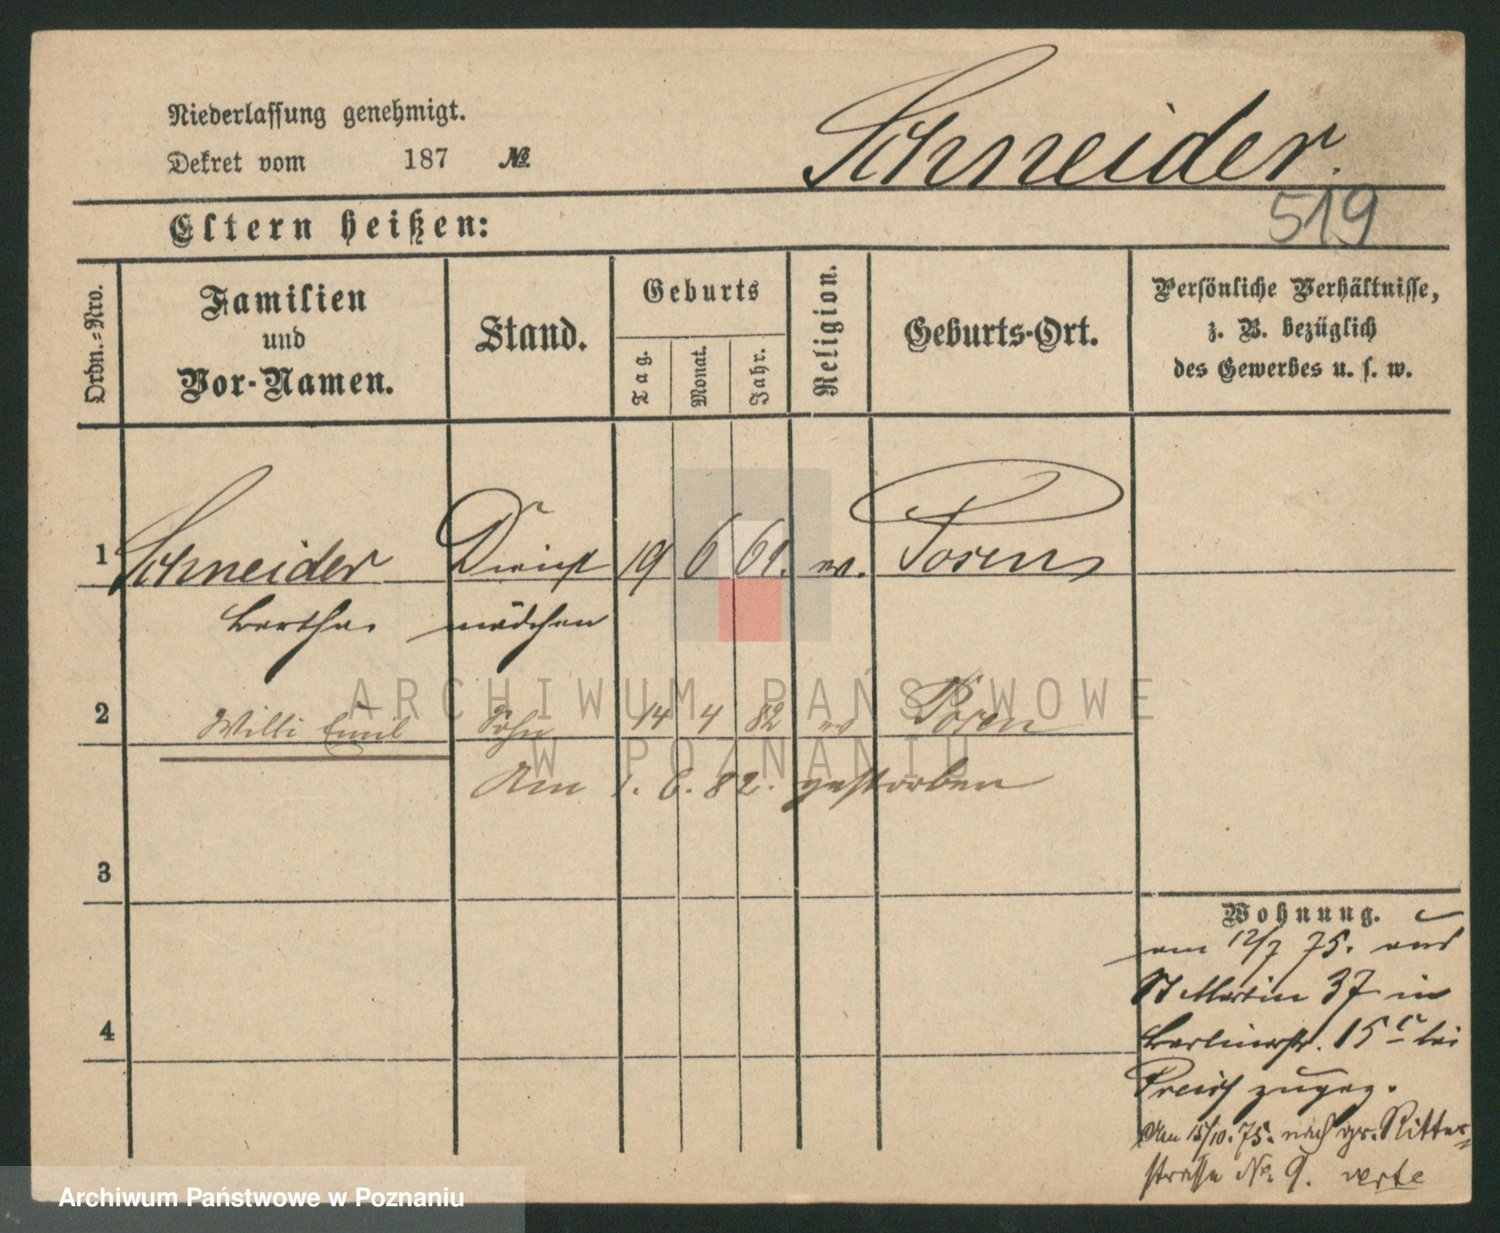 Niederlassung genehmigt.
Dekret vom 187 №
Schneider.
519
Eltern heißen:
Ordn.-Nro.
Familien
und
Vor-Namen.
Stand.
Geburts
Tag.
Monat.
Jahr.
Religion.
Geburts-Ort.
Persönliche Verhältnisse,
z. B. bezüglich
des Gewerbes u. s. w.
1 Schneider Dienst 19 6 61. ev. Posen
Bertha. mädchen
2 Willi Emil Sohn 14 4 82 ev Posen
Am 1. 6. 82. gestorben
3
4
Wohnung.
am 12/7 75. aus
St Martin 37 in
Berlinerstr. 15c bei
zugez.
Am 15/10. 75. nach gr. Ritter=
strasse No 9. verte
ARCHIWUM PAŃSTWOWE
W POZNANIU
Archiwum Państwowe w Poznaniu